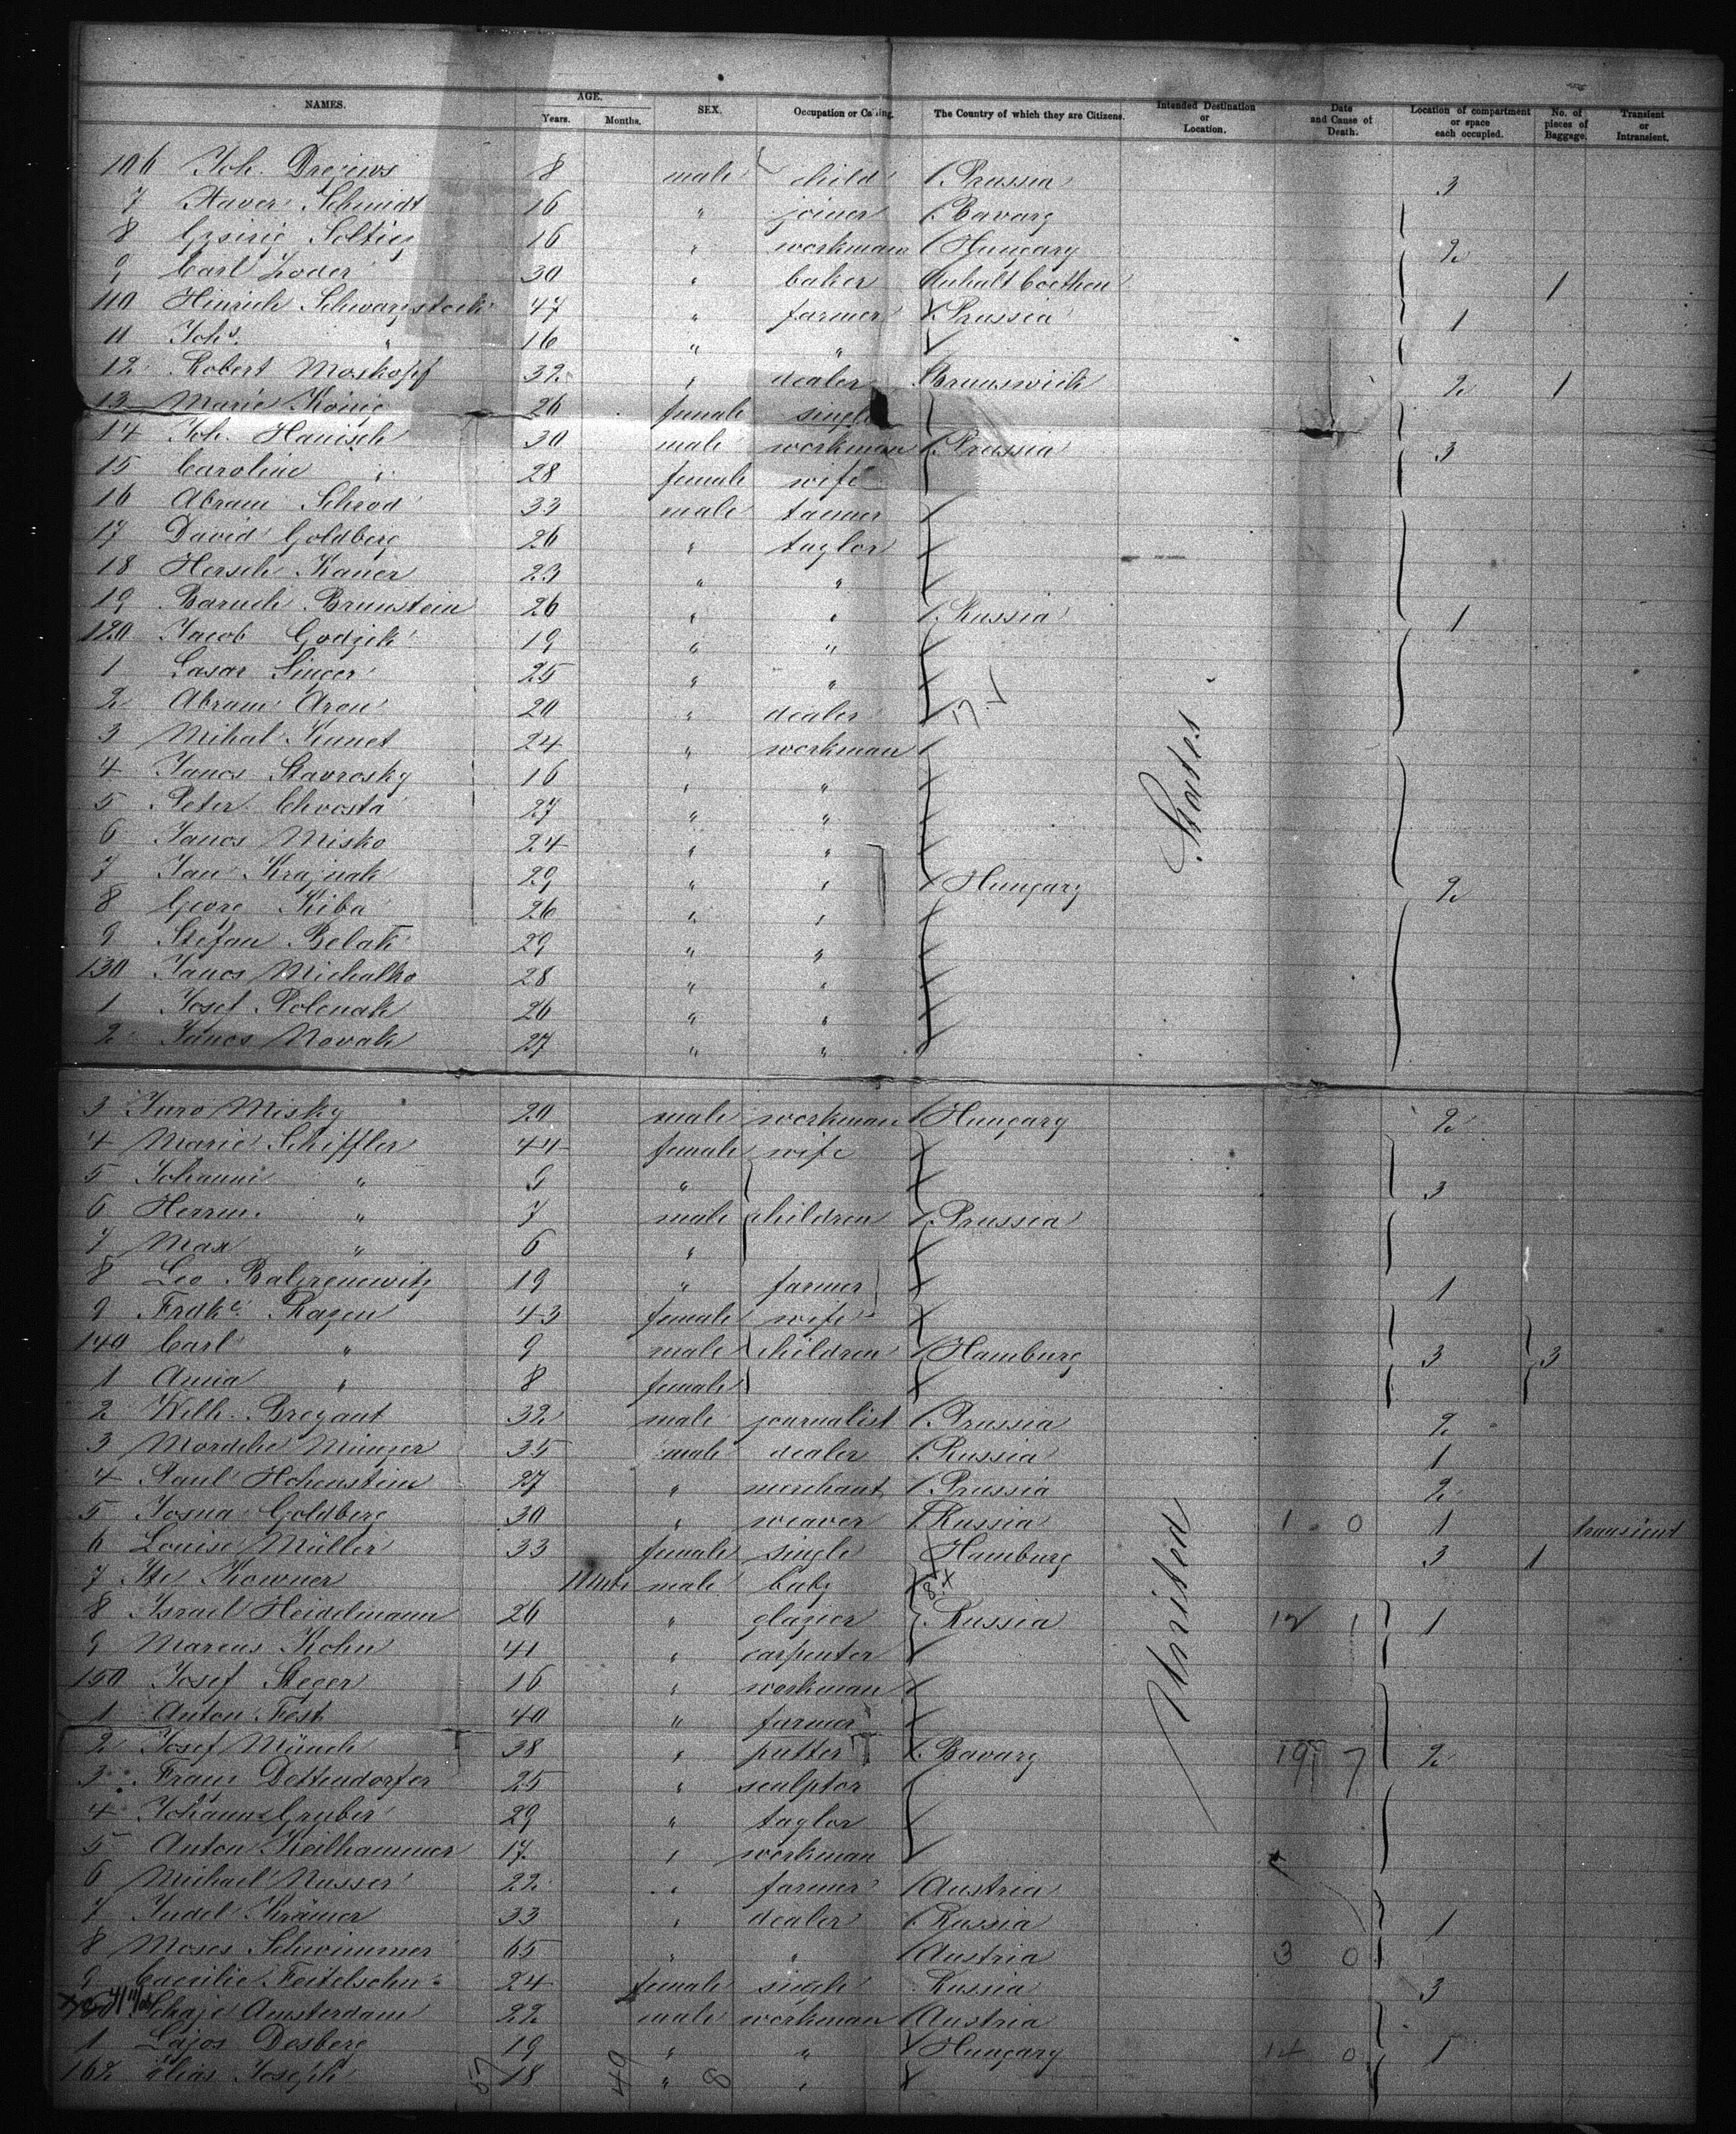 NAMES. AGE. Years. Months. SEX. Occupation or Calling. The Country of which they are Citizens. Intended Destination or Location. Date and Cause of Death. Location of compartment or space each occupied. No. of pieces of Baggage. Transient or Intransient.
106 Joh. Drejews 8 male child Prussia 3
7 Xaver Schmidt 16 " joiner Bavary
8 16 " workman Hungary 2
9 Carl Zoder 30 " baker Anhalt Coethen 1
110 Hinrich Schwarzstock 47 " farmer Prussia 1
11 Johs. " 16 " "
12 Robert Moskopf 32 " dealer Brunswick 2 1
13 Marie König 26 female single
14 Joh. Hanisch 30 male workman Prussia 3
15 Caroline " 28 female wife
16 Abram Schrod 33 male tanner
17 David Goldberg 26 " taylor
18 Hersch Kaner 23 " "
19 Baruch Brunstein 26 " " Russia 1
120 Jacob Godzik 19 " "
1 Lasar Singer 25 " "
2 Abram Aron 20 " dealer 17
3 Mihal Kunet 24 " workman
4 Janos Stavrosky 16 " "
States
5 Peter Chvosta 27 " "
6 Janos Misko 24 " "
7 Jan Krajnak 29 " " Hungary 2
8 Georg Kiba 26 " "
9 Stefan Belak 29 " "
130 Janos Michalko 28 " "
1 Josef Polenak 26 " "
2 Janos Novak 27 " "
3 Juro Misky 20 male workman Hungary 2
4 Marie Schiffler 44 female wife
5 Johanne " 9 " 3
6 Herrm. " 7 male children Prussia
7 Max " 6 "
8 Leo 19 " farmer 1
9 Fredke. Kagen 43 female wife
140 Carl " 9 male children Hamburg 3 3
1 Anna " 8 female
2 Wilh. Bregant 32 male journalist Prussia 2
3 Mordche Minzer 35 male dealer Russia 1
4 Paul Hohenstein 27 " merchant Prussia 2
5 Josua Goldberg 30 " weaver Russia 1 0 1 transient
6 Louise Müller 33 female single Hamburg 3 1
7 Kowner male baby 8 x
United
8 Israel Heidelmann 26 " glazier Russia 12 1 1
9 Marcus Kohn 41 " carpenter
150 Josef Steger 16 " workman
1 Anton Fest 40 " farmer
2 Josef Münch 38 " putter Bavary 19 7 2
3 Franz Dettendorfer 25 " sculptor
4 Johann Gruber 29 " taylor
5 Anton Keilhammer 17 " workman
6 Michael Nusser 22 " farmer Austria
7 Judel Krämer 33 " dealer Russia 1
8 Moses Schwimmer 65 " " Austria 3 0
9 Caecilie Feitelsohn 24 female single Russia 3
Schaje Amsterdam 22 male workman Austria
1 Lajos Desberg 19 " " Hungary 14 0 1
162 Elias Joseph 57 18 49 " 8 "